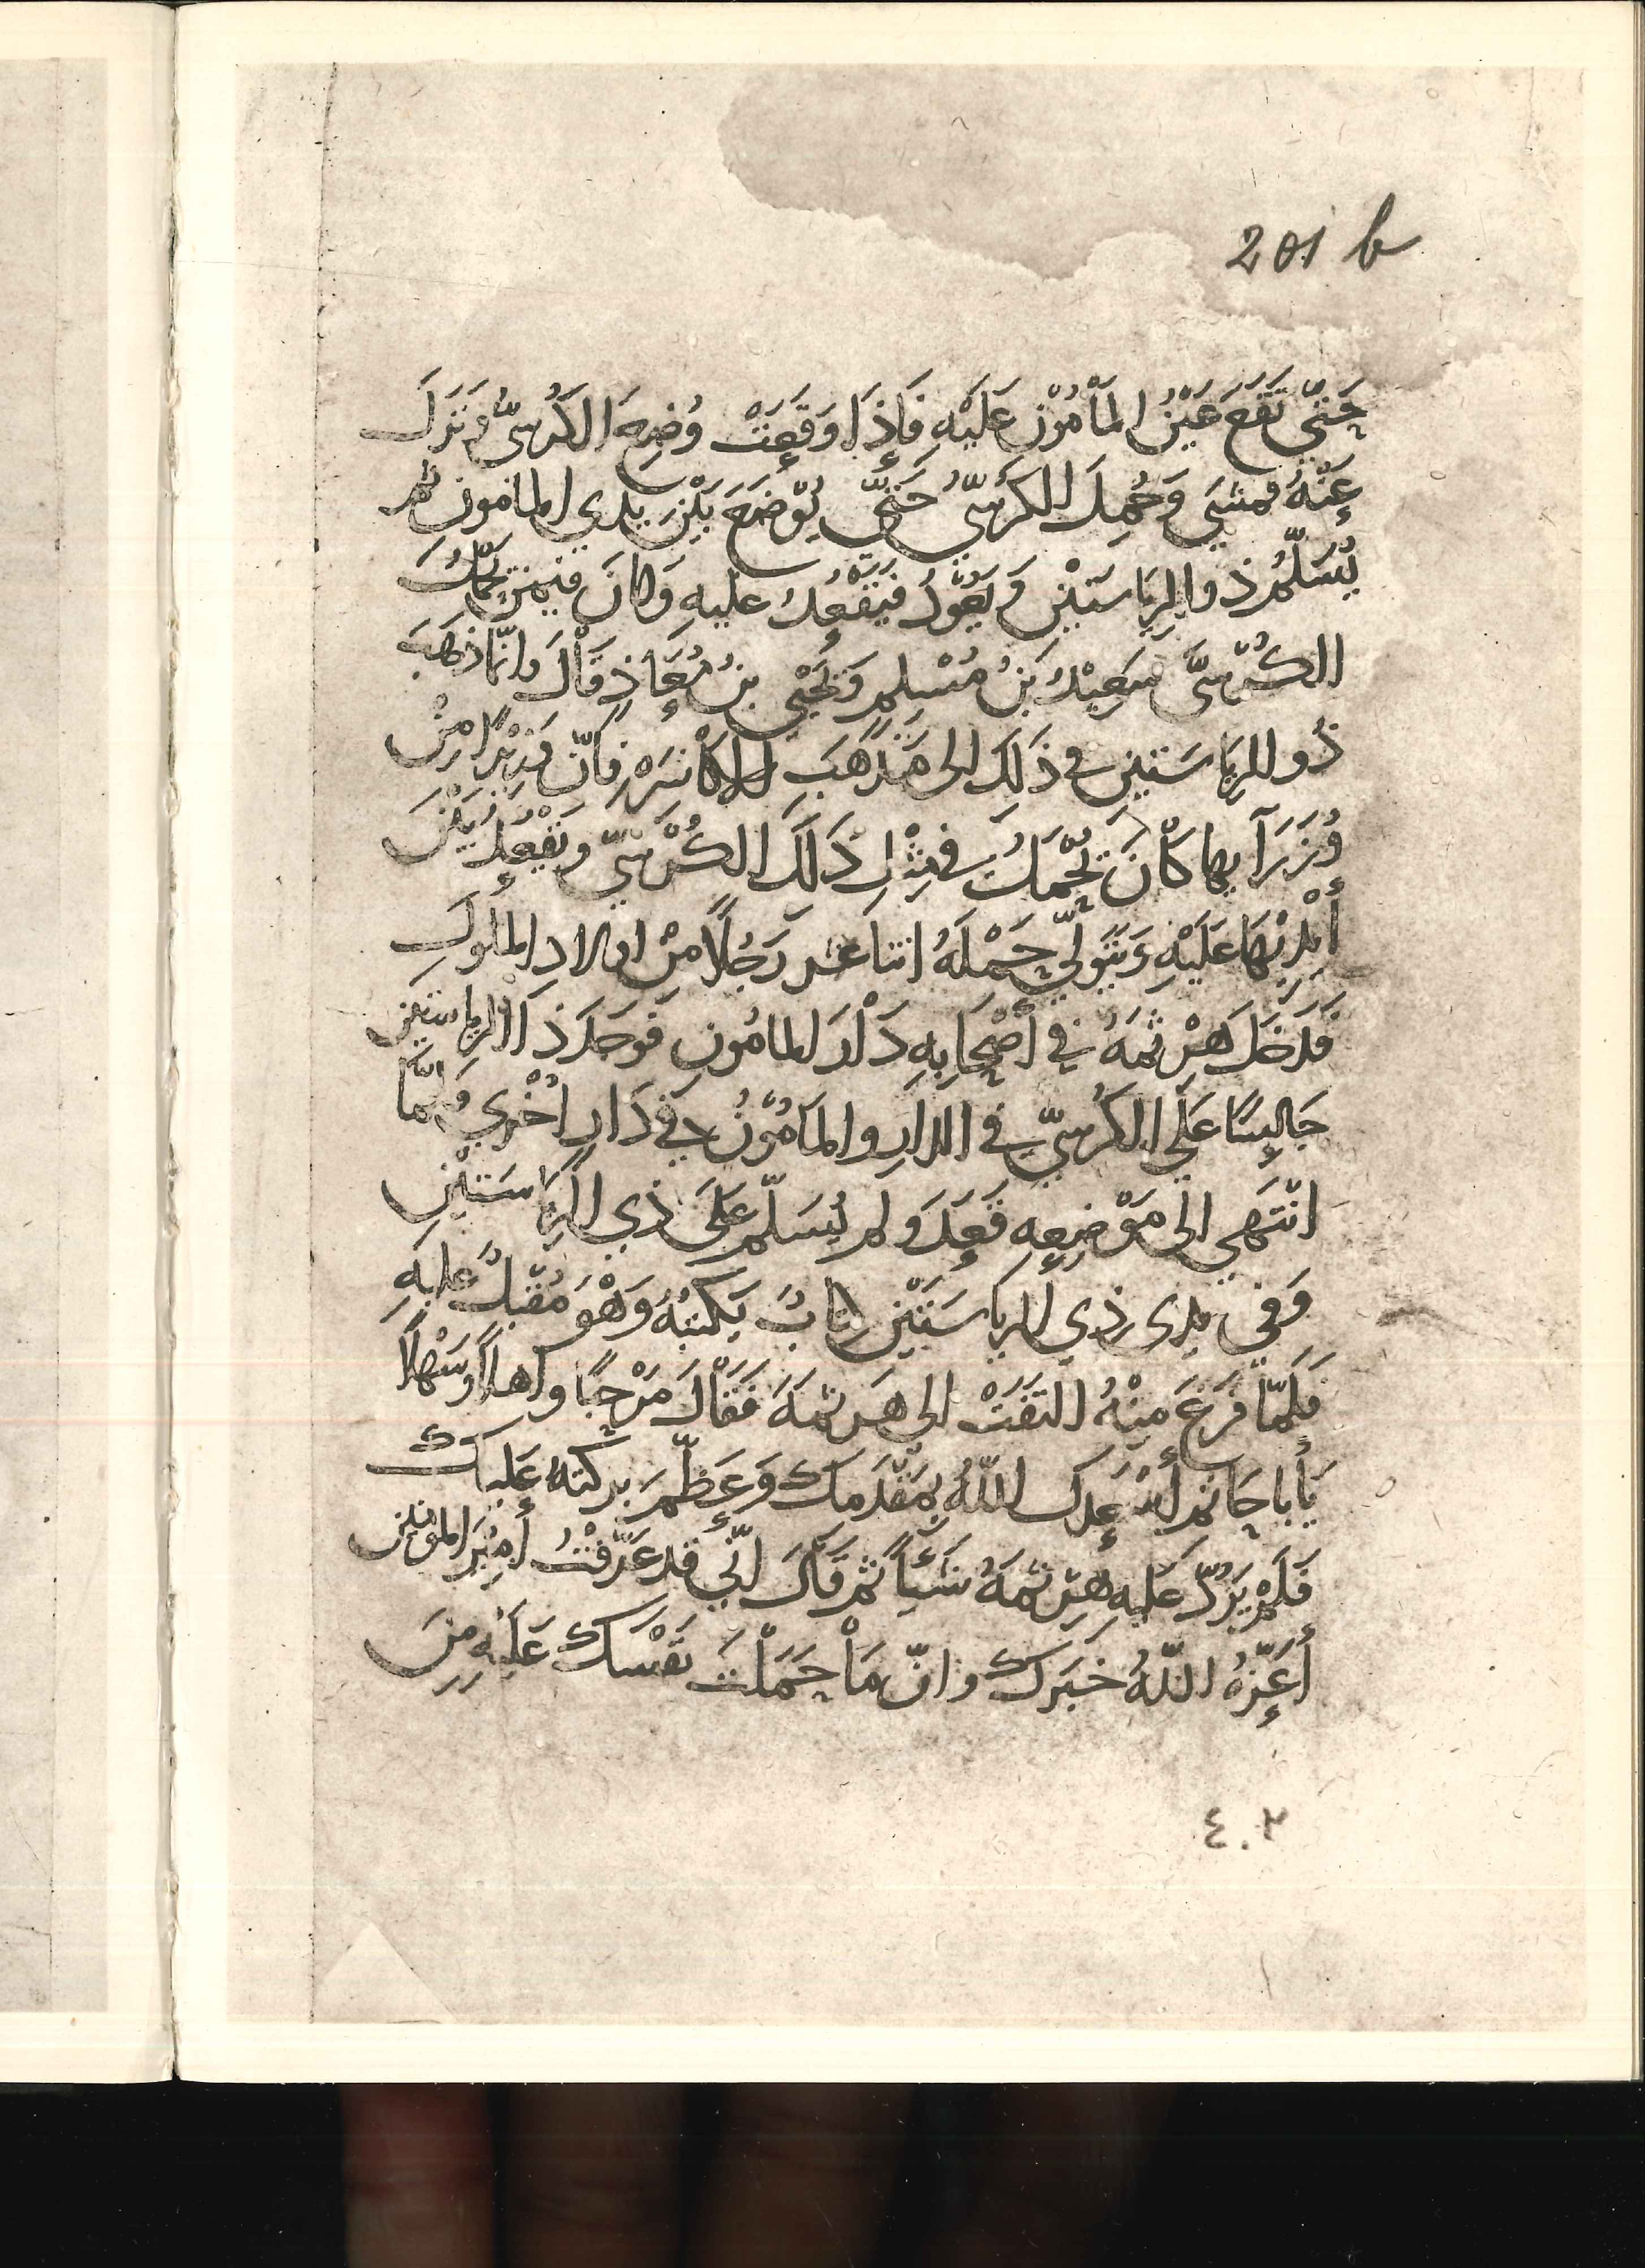 201 b
حَتّي تَقَعَ عَيْنُ المَأْمُوْنِ عَلَيْهِ فَإِذَا وَقَعَتْ وُضِعَ الكُرْسيُّ وَنَزَلَ
عَنْهُ فمشَي وَحُمِلَ الكُرْسيُّ حَتّي يُوْضَعَ بَيْنَ يدي المامُونِ ثم
يُسَلّمُ ذو الرِيَاسَتَيْنِ وَيَعُوْدُ فَيَقْعُدُ عليهِ وَكانَ فيمَنْ يَحْمِلُ
الكُرْسيَّ سَعِيْدُ بنُ مُسْلِمٍ وَيَحْيَي بنُ مُعَاذٍ قَالَ وانّما ذهَبَ
ذُو الرِيَاسَتَينِ في ذَلِكَ الى مَذْهَبِ الاكَاسَرَهِ فانّ وَزِيْرًا مِنْ
وُزَرَآيها كَانَ يُحْمَلُ في مِثْلِ ذَلِكَ الكُرْسِيّ وَيَقْعُدُ بَيْنَ
أَيْدِيْهَا عَلَيْهِ وَيَتَوَلّي حَمْلَهُ اثنا عشر رَجُلًا مِنْ اولادِ المُلُوكِ
فَدَخَلَ هَرْثَمَهُ في أَصْحَابِهِ دَارَ المامُونِ فَوَجَدَ ذَا الرياستَينِ
جَالِسًا عَلَي الكُرْسِيّ في الدارِ والمَامُوْنُ في دَارٍ اُخْرَي فَلَمّا
انْتَهَي الَى مَوْضِعِهِ قَعَدَ ولم يُسَلّمْ عَلَي ذي الرِيَاسَتَيْنِ
وَفي يدي ذِي الرِيَاسَتَيْنِ كتابٌ يَكْتُبُهُ وَهْوَ مُقْبِلٌ عليهِ
فَلَمّا فَرَغَ مِنْهُ التَفَتَ الى هَرثمَهَ فَقَالَ مَرْحَبًا واهلًا وسَهْلًا
يَأبا حَاتمٍ أسْعدكَ اللّهُ بِمَقْدَمك وَعَظّمَ بركتهُ عَلَيكَ
فَلَمْ يَرُدّ عَلَيهِ هَرْثَمَهُ شَيْأً ثم قَالَ انّي قد عَرّفْتُ أمِيْرَ المؤمنين
أَعَزّهُ اللّهُ خبَرَك وانّ مَا حَمَلْتَ نَفْسَك عَلَيْهِ مِنَ
٤٠٢